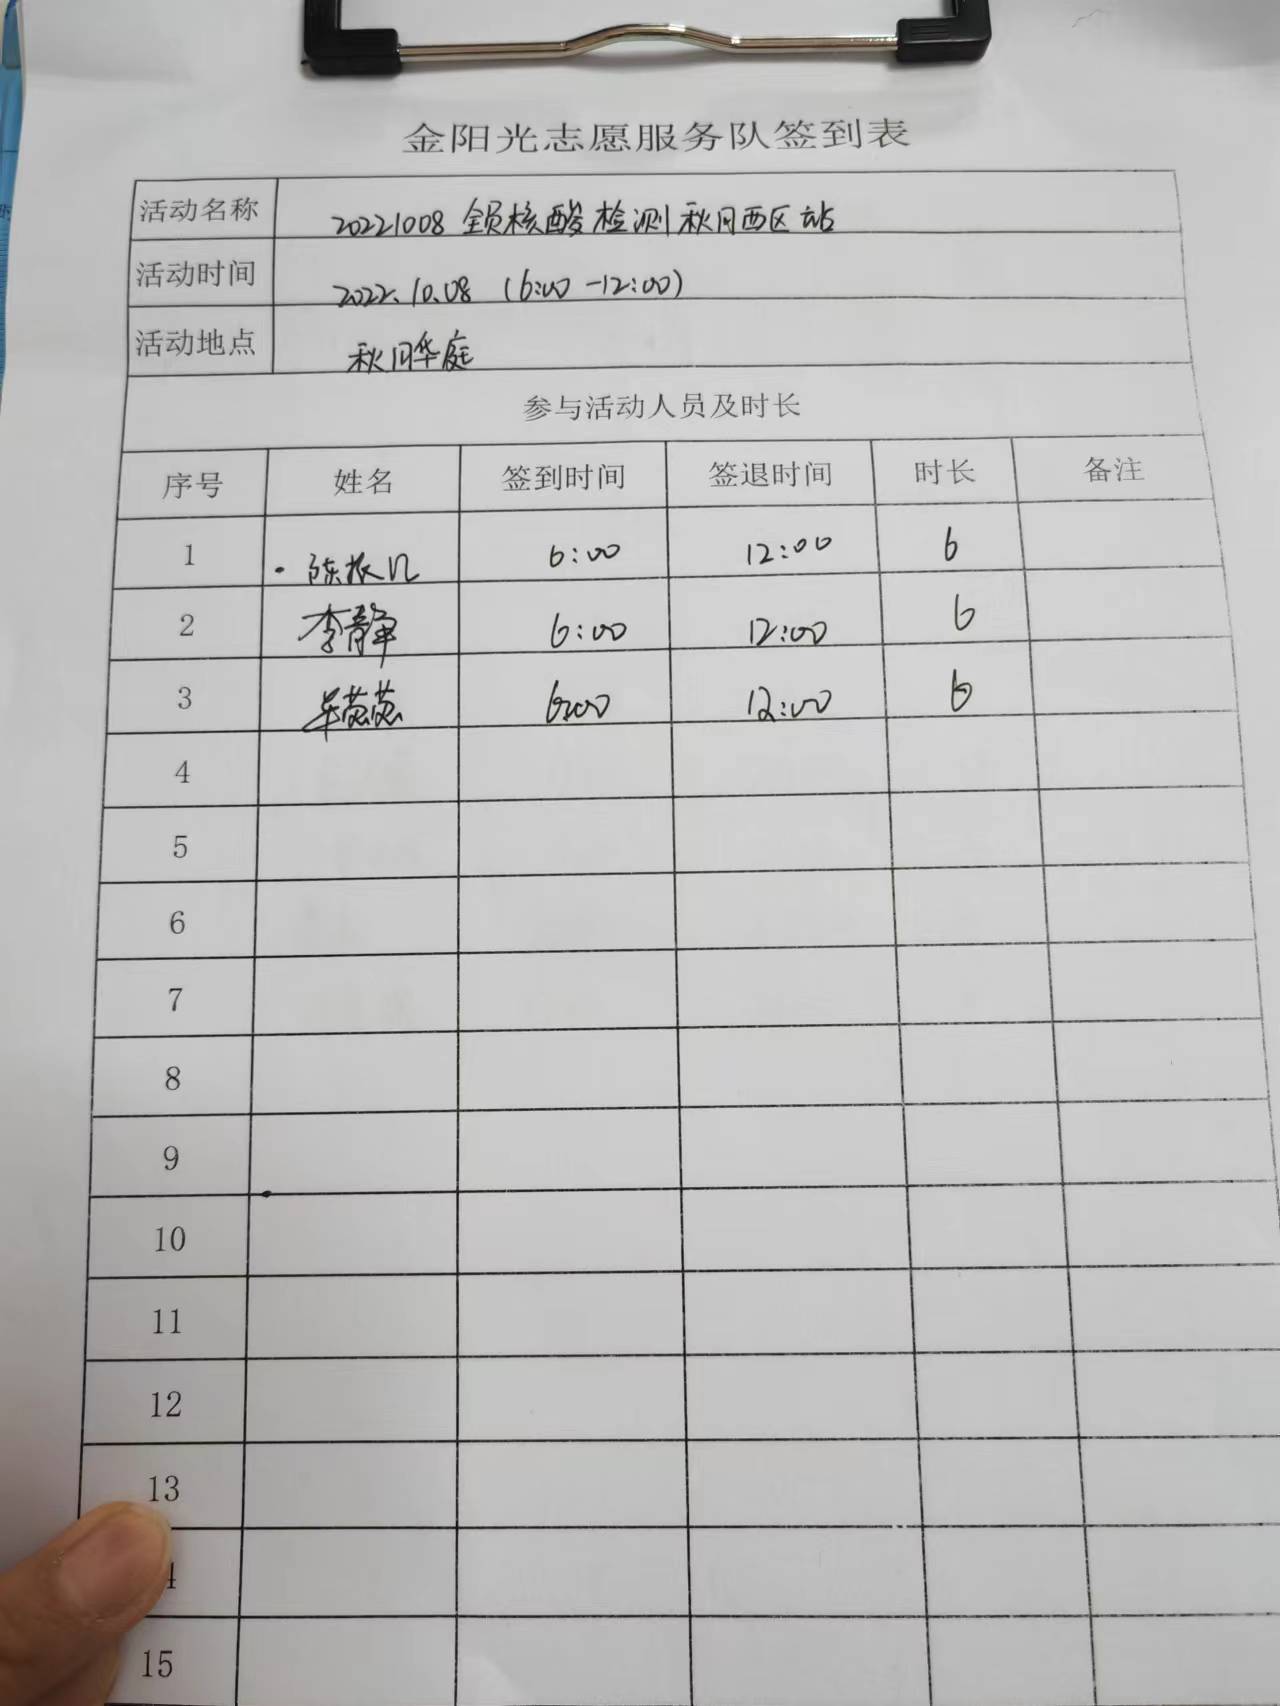 金阳光志愿服务队签到表
活动名称 20221008 全员核酸检测秋月西区站
活动时间 2022.10.08 (6:00-12:00)
活动地点 秋月华庭
参与活动人员及时长
序号 姓名 签到时间 签退时间 时长 备注
1 6:00 12:00 6
2 李静 6:00 12:00 6
3 6:00 12:00 6
4
5
6
7
8
9
10
11
12
13
4
15